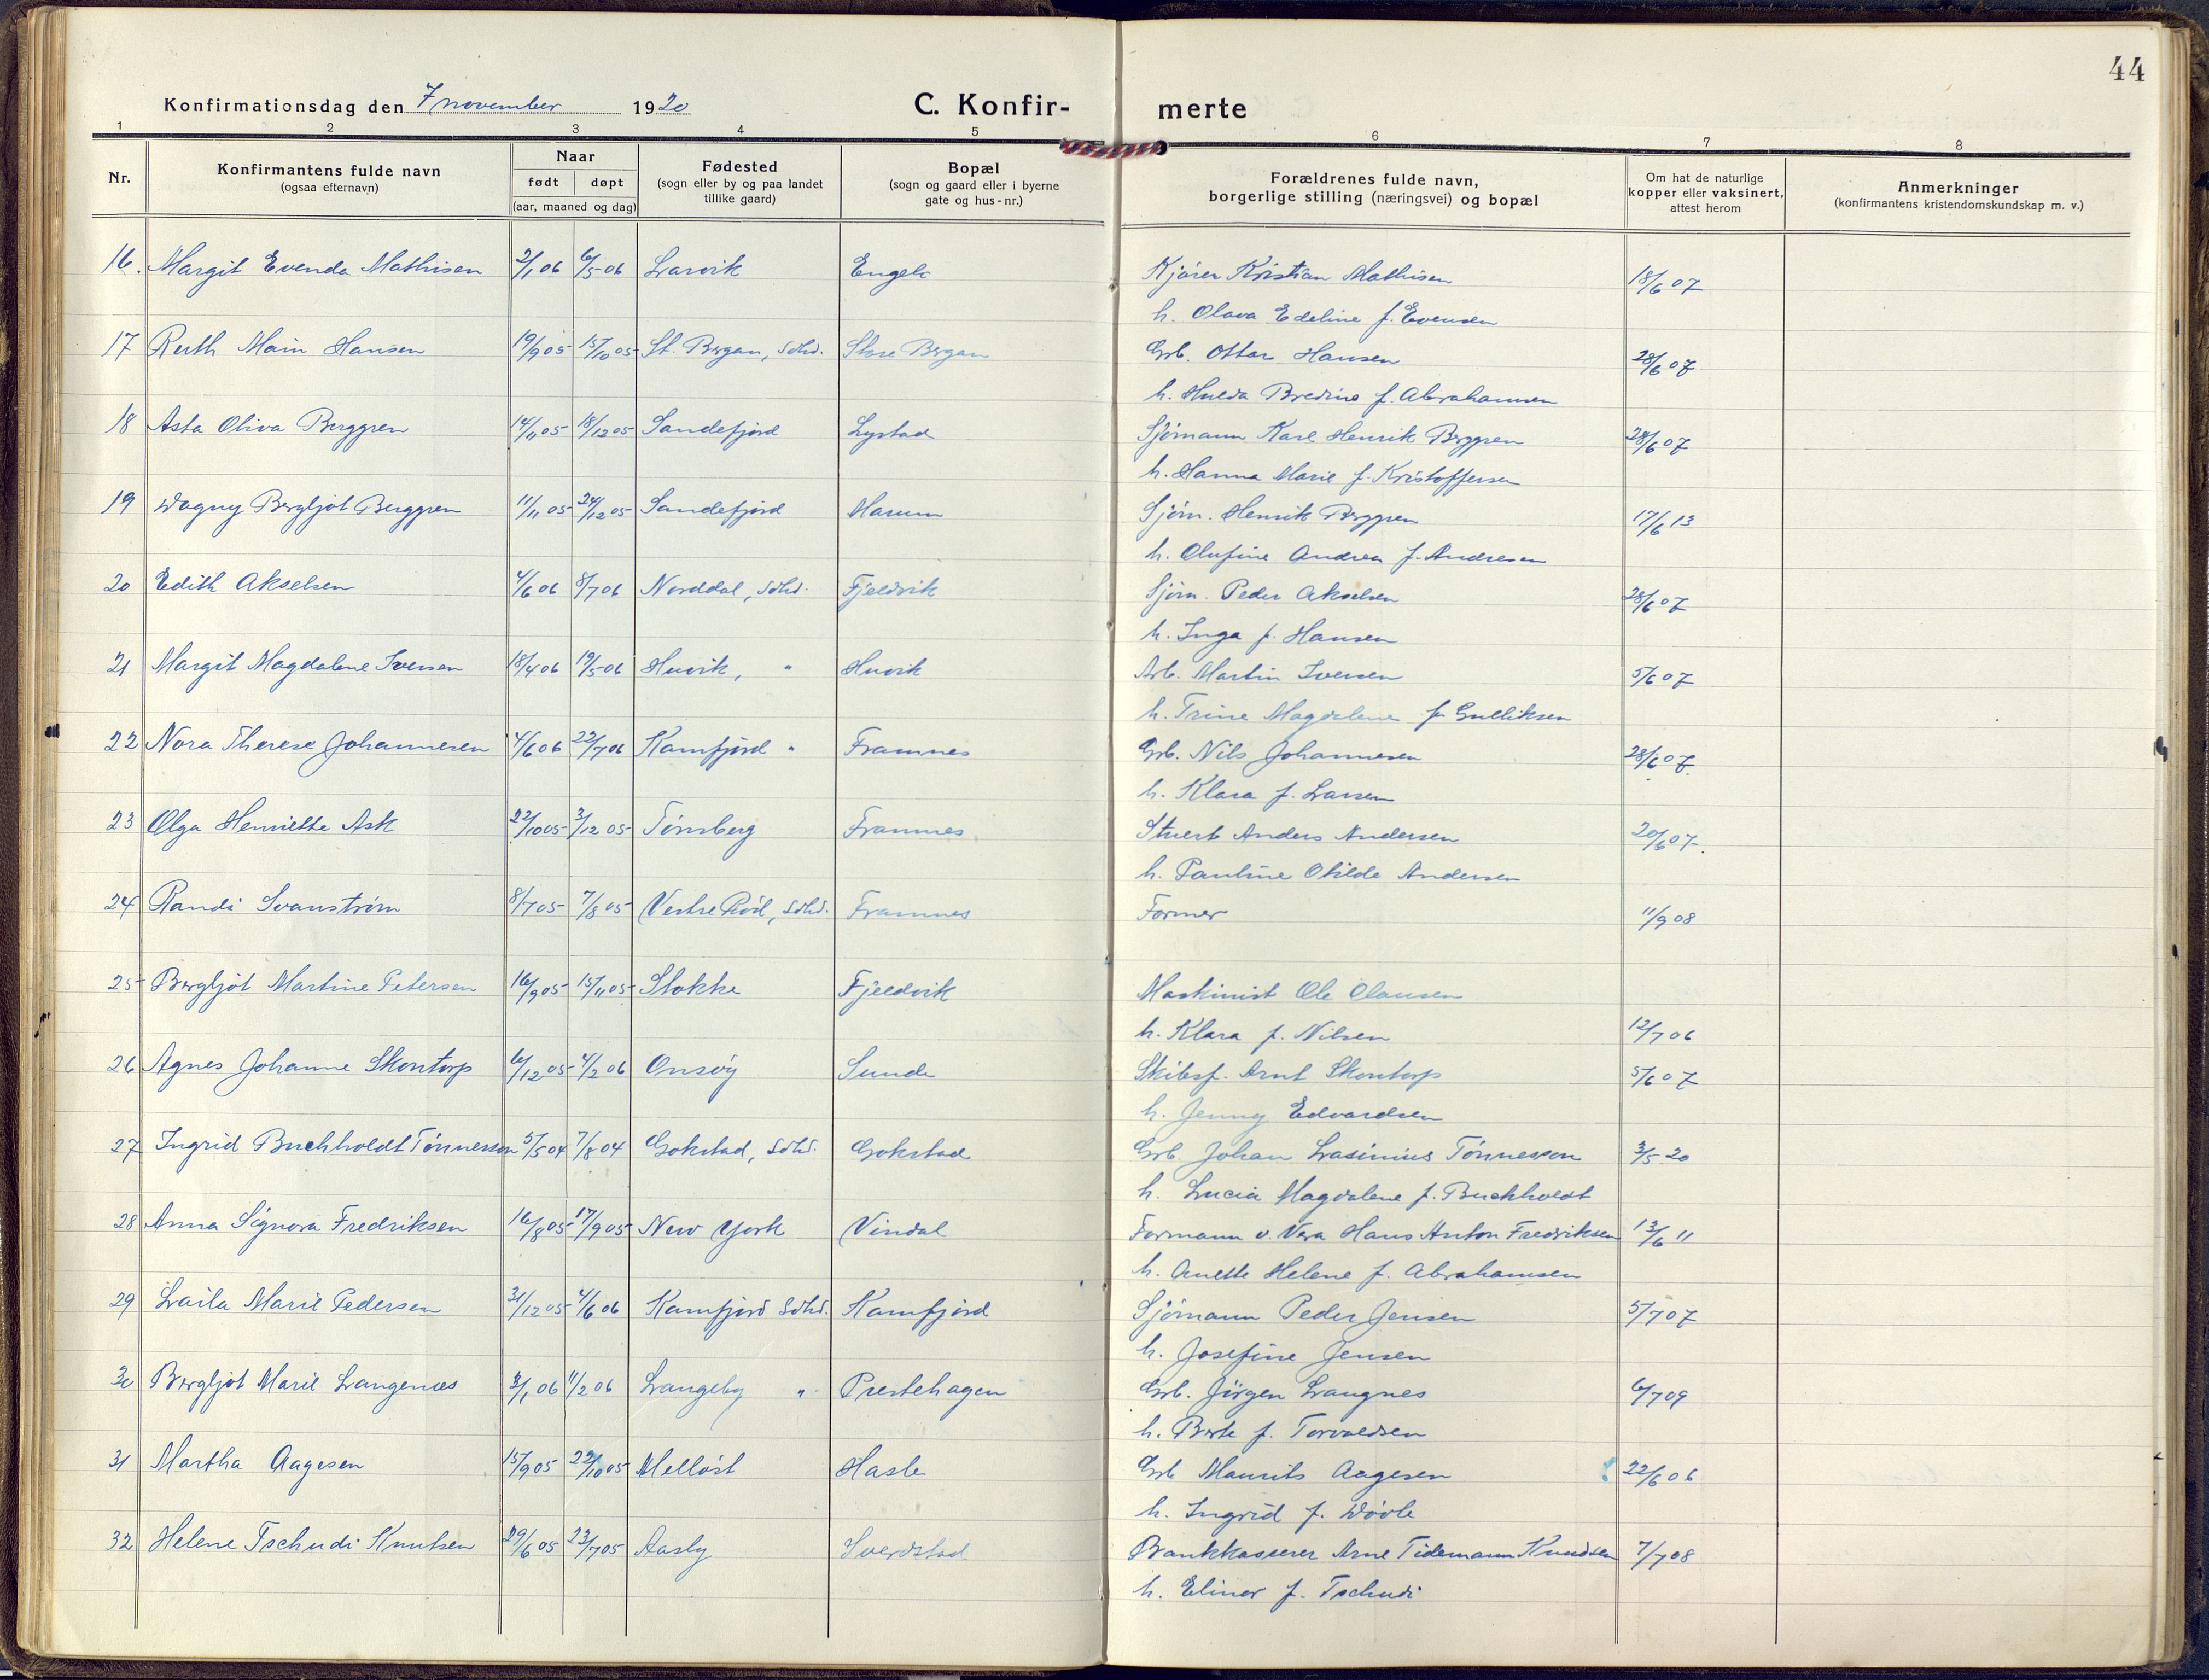 44
Konfirmationsdag den 7 november 1920 C. Konfir- merte
1 2 3 4 5 6 7 8
Nr. Konfirmantens fulde navn (ogsaa efternavn) Naar født døpt (aar, maaned og dag) Fødested (sogn eller by og paa landet tillike gaard) Bopæl (sogn og gaard eller i byerne gate og hus-nr.) Forældrenes fulde navn, borgerlige stilling (næringsvei) og bopæl Om hat de naturlige kopper eller vaksinert, attest herom Anmerkninger (konfirmantens kristendomskundskap m. v.)
16. Margit Evenda Mathisen 2/1 06 6/5-06 Larvik Engelc Kjører Kristian Mathisen 18/6 07
h. Olava Edeline f. Evensen
17 Ruth Main Hansen 19/9 05 15/10 05 St. Bergan, Sdhd. Store Bergan Grb. Ottar Hansen 28/6 07
h. Hulda Bredine f. Abrahamsen
18 Asta Oliva Berggren 14/11 05 18/12 05 Sandefjord Lystad Sjømann Karl Henrik Berggren 28/6 07
h. Hanna Marie f. Kristoffersen
19 Dagny Bergljot Berggren 11/11 05 24/12 05 Sandefjord Marum Sjøm. Henrik Berggren 17/6 13
h. Olufine Andrea f. Andresen
20 Edith Akselsen 4/6 06 8/7 06 Norddal, Sdhd. Fjeldvik Sjøm. Peder Akselsen 28/6 07
h. Inga f. Hansen
21 Margit Magdalene Iversen 18/4 06 19/5-06 Huvik, " Huvik Arb. Martin Iversen 5/6 07
h. Trine Magdalene f. Gulliksen
22 Nora Therese Johannesen 4/6 06 22/7 06 Kamfjord " Framnes Grb. Nils Johannesen 28/6 07.
h. Klara f. Larsen
23 Olga Henriette Ask 22/10 05 3/12 05 Tønsberg Framnes Stuert Anders Andersen 20/6 07.
h. Pauline Otilde Andersen
24 Randi Svanstrøm 8/7 05 7/8 05 Vestre Rød, Sdhd. Framnes Former 11/9 08
25 Bergljot Martine Petersen 16/9 05 15/11 05 Stokke Fjeldvik Maskinist Ole Olausen
h. Klara f. Nilsen 12/7 06
26 Agnes Johanne Skontorp 6/12 05 4/2 06 Onsøy Sunde Skibsf. Arnt Skontorp 5/6 07
h. Jenny Edvardsen
27 Ingrid Buchholdt Tønnesson 5/5 04 7/8 04 Gokstad, Sdhd. Gokstad Grb. Johan Lasinius Tønnesson 3/5 20
h. Lucia Magdalene f. Buchholdt
28 Anna Signora Fredriksen 16/8 05 17/9 05 New York Vindal Formann v. Vera Hans Anton Fredriksen 13/6 11
h. Anette Helene f. Abrahamsen
29 Laila Marie Pedersen 31/12 05 4/6 06 Kamfjord Sdhd. Kamfjord Sjømann Peder Jensen 5/7 07
h. Josefine Jensen
30 Bergljot Marie Langenæs 3/1 06 11/2 06 Langeby " Prestehagen Grb. Jørgen Langnes 6/7 09
h. Berte f. Torvaldsen
31 Martha Aagesen 15/9 05 22/10 05 Melløst Hasle Grb Maurits Aagesen 22/6 06
h. Ingrid f. Døvle
32 Helene Tschudi Knutsen 29/6 05 23/7 05 Aasly Sverdstad Bankkasserer Arne Tidemann Knudsen 7/7 08
h. Elinor f. Tschudi